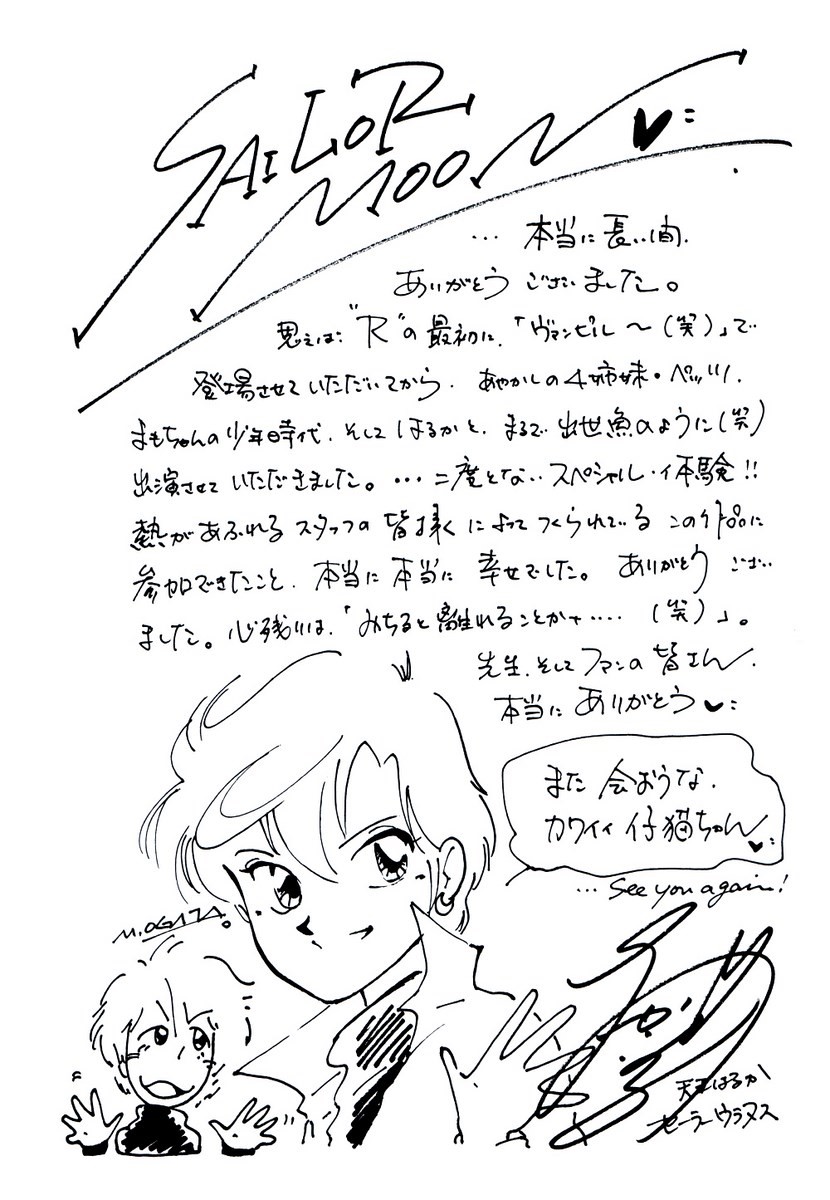 SAILOR
MOON ♥
… 本当に長い間、
ありがとうございました。
思えば "R"の最初に、「ヴァンピル～(笑)」で
登場させていただいてから、あやかしの4姉妹・ペッツ、
まもちゃんの少年時代、そしてはるかと、まるで出世魚のように(笑)
出演させていただきました。…二度とないスペシャル・体験!!
熱があふれるスタッフの皆様によってつくられているこの作品に
参加できたこと、本当に本当に幸せでした。ありがとうござい
ました。心残りは、「みちると離れることかナ…. (笑)」。
先生、そしてファンの皆さん、
本当にありがとう♥
また会おうな、
カワイイ仔猫ちゃん♥
… See you again!
M.OGATA。
天王はるか
セーラーウラヌス